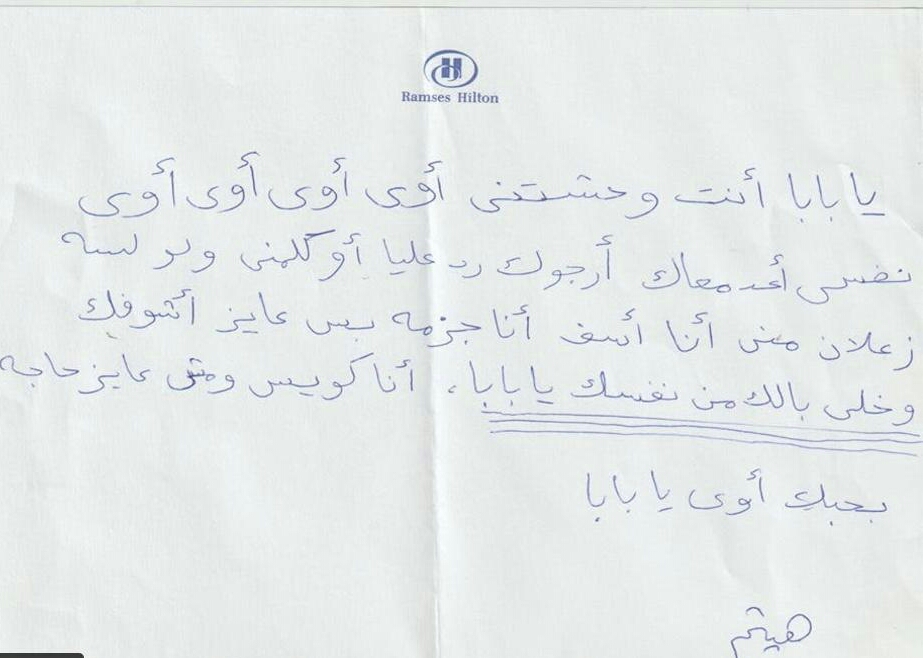 Ramses Hilton
يا بابا أنت وحشتنى أوى أوى أوى أوى
نفسى أعد معاك أرجوك رد عليا أو كلمنى ولو لسه
زعلان منى أنا أسف أنا جزمه بس عايز أشوفك
وخلى بالك من نفسك يا بابا، أنا كويس ومش عايز حاجه
بحبك أوى يا بابا
هيثم